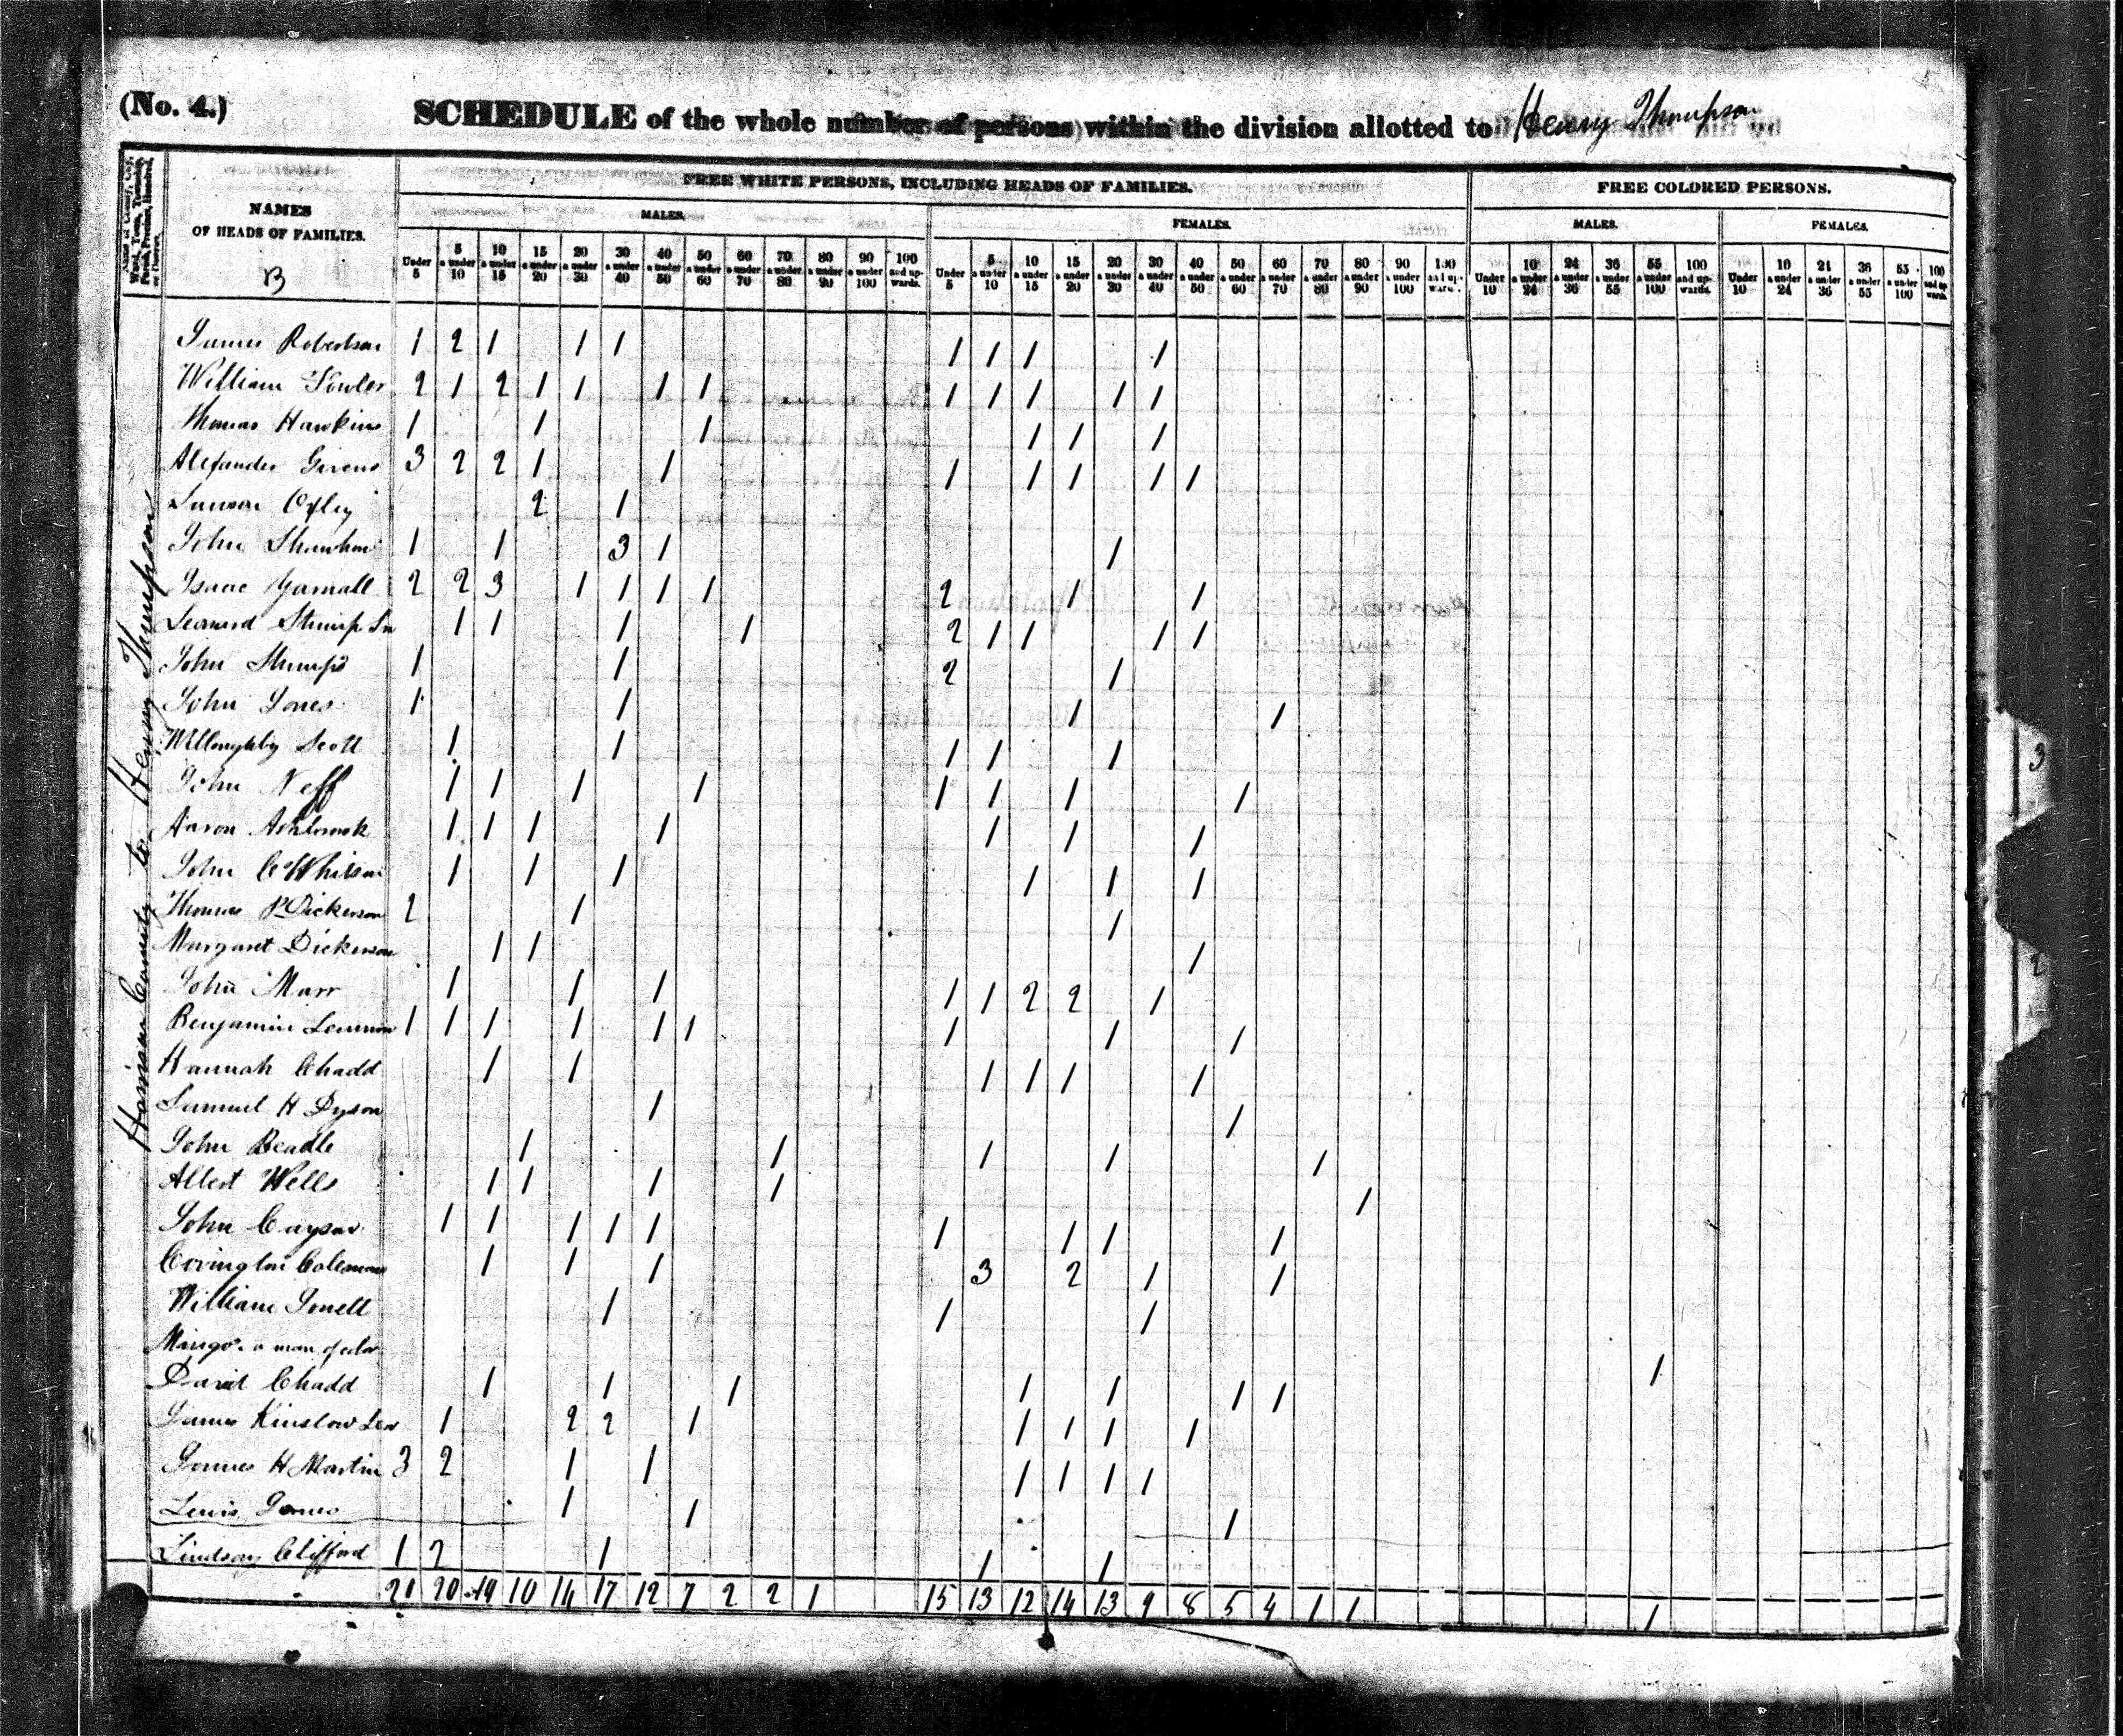 (No. 4.)
SCHEDULE of the whole number of persons within the division allotted to Henry Thompson
Name of County, City, Ward, Town, Township, Parish, Precinct, Hundred, or District.
NAMES
OF HEADS OF FAMILIES.
B
FREE WHITE PERSONS, INCLUDING HEADS OF FAMILIES.
FREE COLORED PERSONS.
MALES.
FEMALES.
MALES.
FEMALES.
Under 5
5 a under 10
10 a under 15
15 a under 20
20 a under 30
30 a under 40
40 a under 50
50 a under 60
60 a under 70
70 a under 80
80 a under 90
90 a under 100
100 and upwards.
Under 5
5 a under 10
10 a under 15
15 a under 20
20 a under 30
30 a under 40
40 a under 50
50 a under 60
60 a under 70
70 a under 80
80 a under 90
90 a under 100
100 and upwards.
Under 10
10 a under 24
24 a under 36
36 a under 55
55 a under 100
100 and upwards.
Under 10
10 a under 24
24 a under 36
36 a under 55
55 a under 100
100 and upwards.
Harrison County to Henry Thompson
James Robertson 1 2 1 1 1 1 1 1 1
William Fowler 2 1 2 1 1 1 1 1 1 1 1 1
Thomas Hawkins 1 1 1 1 1 1
Alexander Givens 3 2 2 1 1 1 1 1 1 1
Oxley 2 1
John Shawhan 1 1 3 1 1
Isaac Yarnall 2 2 3 1 1 1 1 2 1 1
Leonard Stump Sr 1 1 1 1 2 1 1 1 1
John Stump 1 1 2 1
John Jones 1 1 1 1
Willoughby Scott 1 1 1 1 1
John Neff 1 1 1 1 1 1 1 1
Aaron Ashbrook 1 1 1 1 1 1 1
John C Whitson 1 1 1 1 1 1
Thomas P Dickerson 2 1 1
Margaret Dickerson 1 1 1
John Marr 1 1 1 1 1 2 2 1
Benjamin 1 1 1 1 1 1 1 1 1
Hannah Chadd 1 1 1 1 1 1
Samuel H Dyson 1 1
John Beadle 1 1 1 1 1
Albert Wells 1 1 1 1 1
John Caysar 1 1 1 1 1 1 1 1 1
Covington Coleman 1 1 1 3 2 1 1
William 1 1 1
Mingo a man of color 1
David Chadd 1 1 1 1 1 1 1
James Kinslow Sen 1 2 2 1 1 1 1 1
James H Martin 3 2 1 1 1 1 1 1
Lewis Jones 1 1 1
Lindsay Clifford 1 2 1 1 1
20 20 19 10 14 17 12 7 2 2 1 15 13 12 14 13 9 8 5 4 1 1 1
3
2